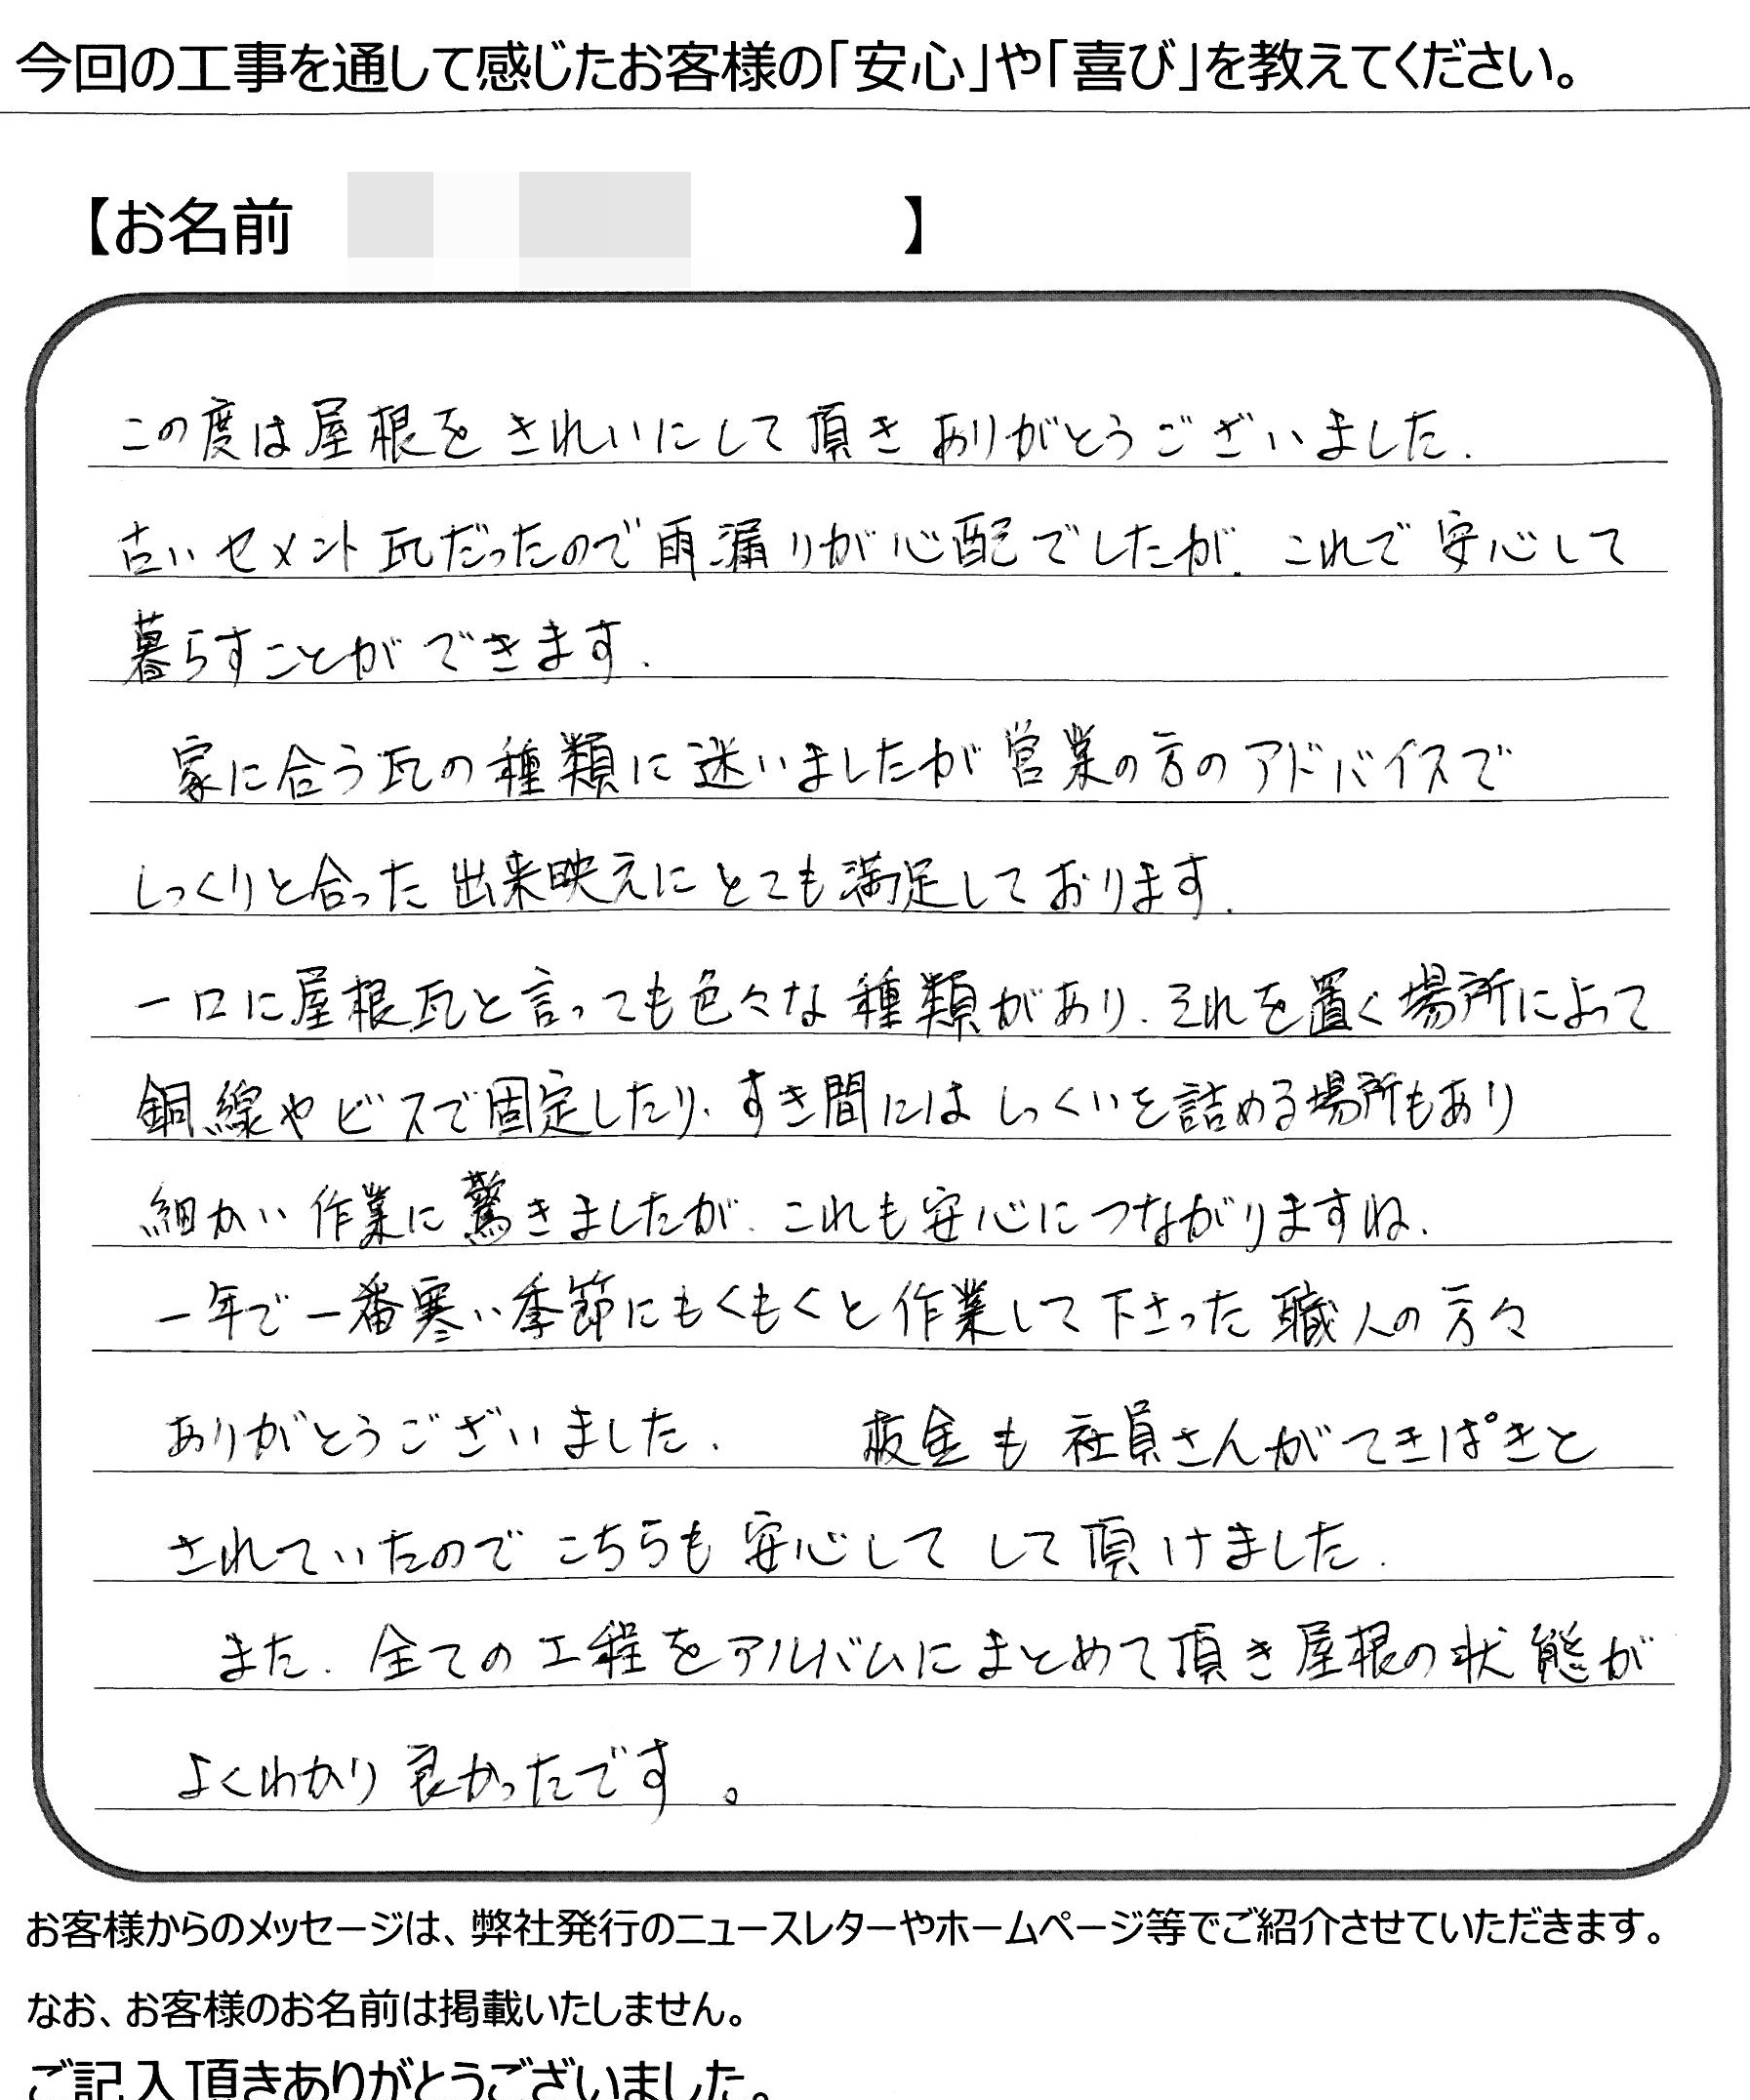 今回の工事を通して感じたお客様の「安心」や「喜び」を教えてください。
【お名前 】
この度は屋根をきれいにして頂きありがとうございました.
古いセメント瓦だったので雨漏りが心配でしたが、これで安心して
暮らすことができます.
家に合う瓦の種類に迷いましたが営業の方のアドバイスで
しっくりと合った出来映えにとても満足しております.
一口に屋根瓦と言っても色々な種類があり、それを置く場所によって
銅線やビスで固定したり、すき間にはしっくいを詰める場所もあり
細かい作業に驚きましたが、これも安心につながりますね.
一年で一番寒い季節にもくもくと作業して下さった職人の方々
ありがとうございました. 板金も社員さんがてきぱきと
されていたのでこちらも安心してして頂けました.
また、全ての工程をアルバムにまとめて頂き屋根の状態が
よくわかり良かったです。
お客様からのメッセージは、弊社発行のニュースレターやホームページ等でご紹介させていただきます。
なお、お客様のお名前は掲載いたしません。
ご記入頂きありがとうございました。